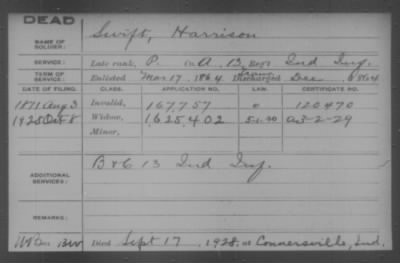 DEAD
NAME OF SOLDIER: Swift, Harrison
SERVICE: Late rank, P. Co A. 13, Reg't Ind Inf.
TERM OF SERVICE: Enlisted Mar 17, 1864 Discharged Dec 1864
DATE OF FILING. CLASS. APPLICATION NO. LAW. CERTIFICATE NO.
1871 Aug 3 Invalid, 167,757 120470
1928 Oct 8 Widow, 1625402 5-1-20 A-3-2-29
Minor,
ADDITIONAL SERVICES: B & C 13 Ind Inf.
REMARKS:
Died Sept 17, 1928, at Connersville, Ind.